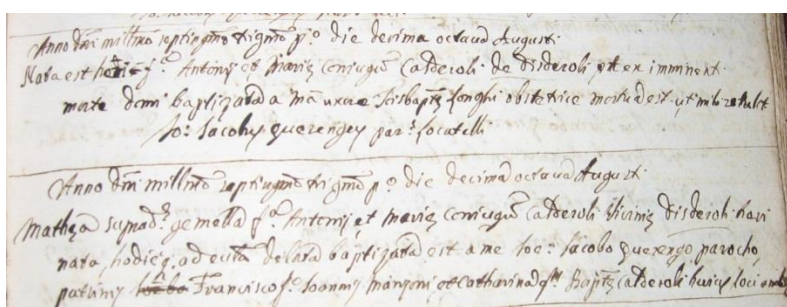 Anno Dni millmo septingmo trigmo p.o die decima octava Augusti
Nata est f.a Antonij et Mariæ coniugu Calderoli de Disderoli et ex imminenti
morte domi baptizata a ma uxore Joisbaptæ Longhi obstetrice mortua est ut mihi retulit
Jo: Jacobus Querengus par.s Locatelli
Anno Dni millmo septingmo trigmo p.o die decima octava Augusti
Mathea suprad.a gemella f.a Antonij et Mariæ coniugu Calderoli Disderoli heri
nata, hodie ad ecclã delata baptizata est a me Joe: Jacobo Querengo parocho,
patrinis Francisco f.o Joannis Manzoni et Catharina q.m Baptæ Calderoli huius loci